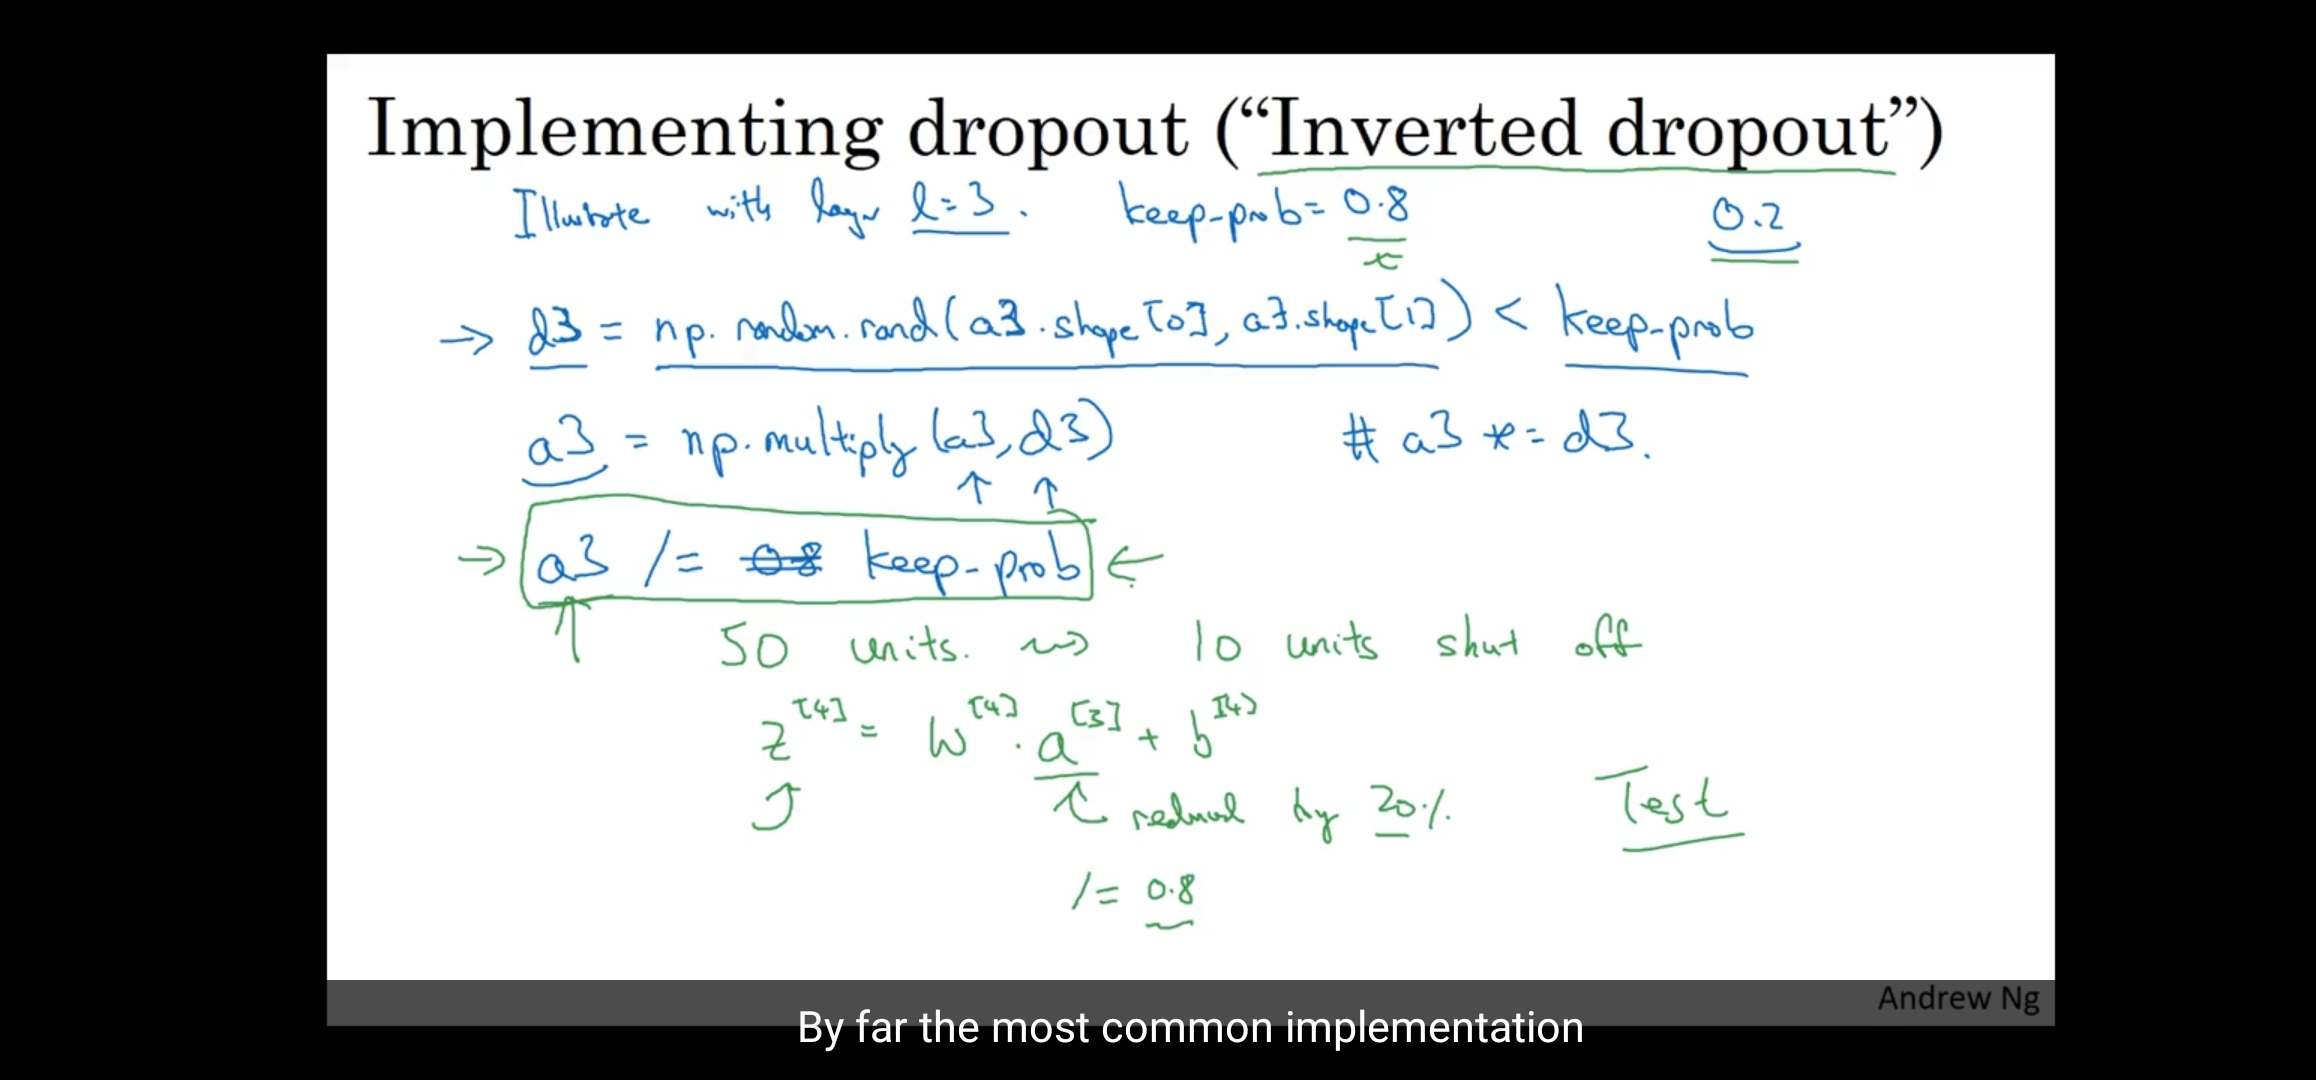 Implementing dropout (“Inverted dropout”)
Illustrate with layer l=3. keep-prob= 0.8 0.2
→ d3 = np.random.rand(a3.shape[0], a3.shape[1]) < keep-prob
a3 = np.multiply(a3,d3) # a3 *= d3.
→ a3 /= 0.8 keep-prob ←
50 units. ⇝ 10 units shut off
z[4] = W[4] . a[3] + b[4]
reduced by 20%. Test
/= 0.8
Andrew Ng
By far the most common implementation